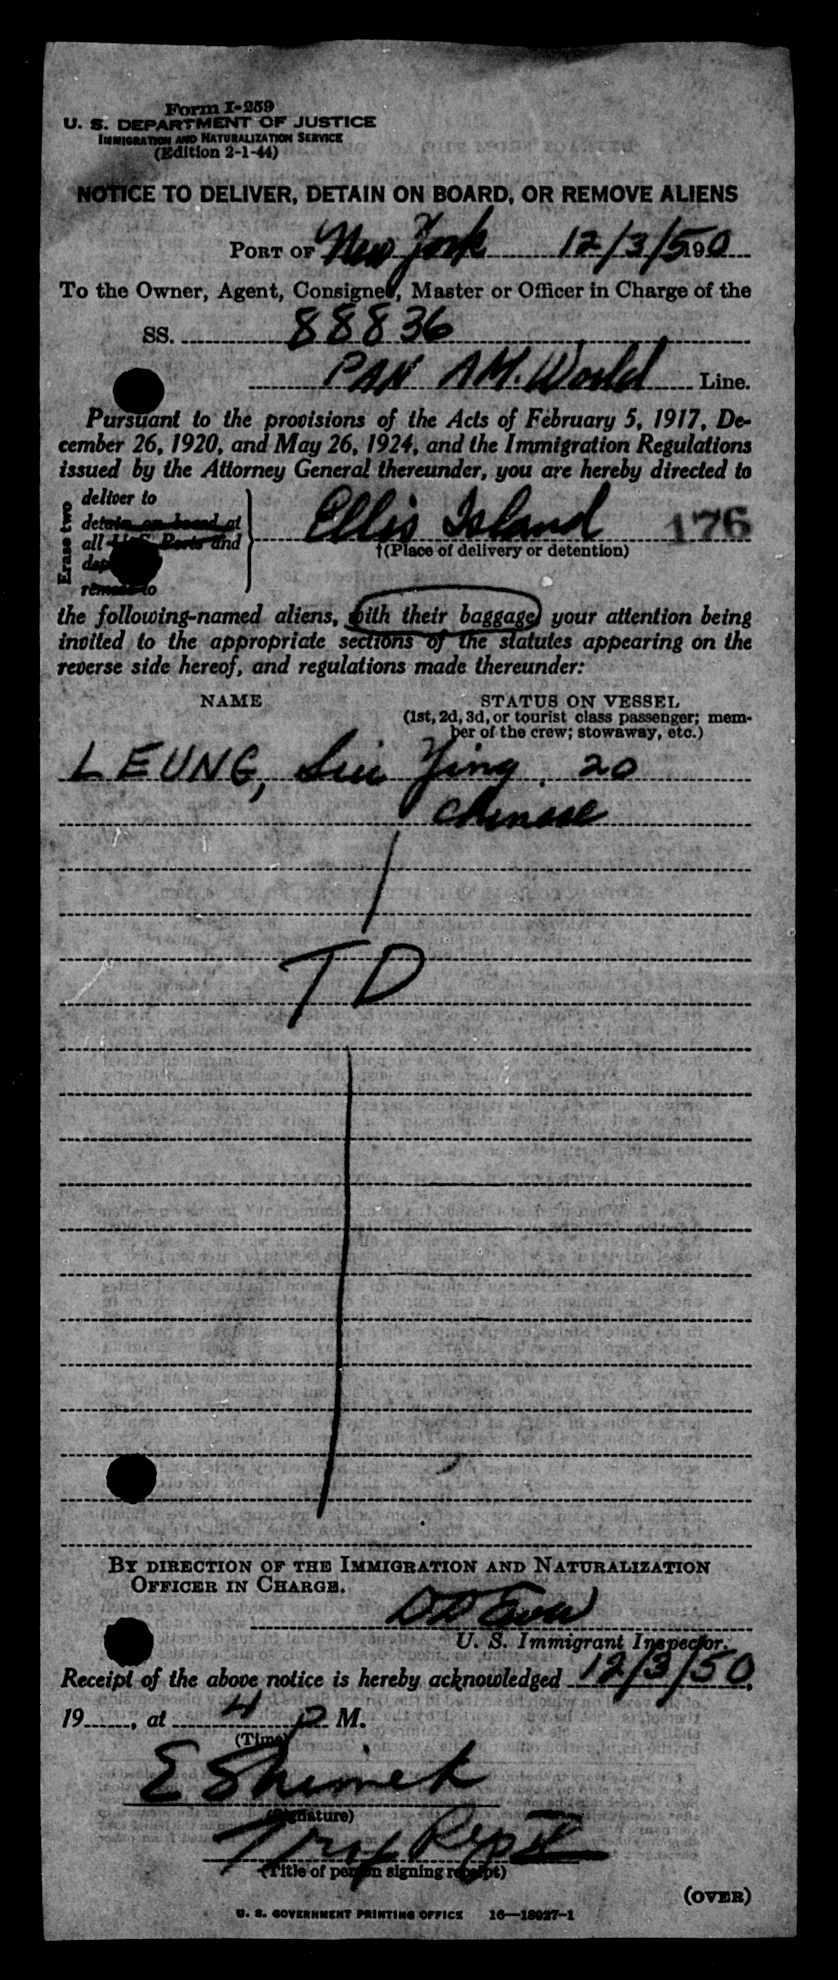 Form I-259
U. S. DEPARTMENT OF JUSTICE
IMMIGRATION AND NATURALIZATION SERVICE
(Edition 2-1-44)
NOTICE TO DELIVER, DETAIN ON BOARD, OR REMOVE ALIENS
PORT OF New York 12/3/50 19
To the Owner, Agent, Consignee, Master or Officer in Charge of the
SS. 88836
PAN AM. World Line.
Pursuant to the provisions of the Acts of February 5, 1917, De-
cember 26, 1920, and May 26, 1924, and the Immigration Regulations
issued by the Attorney General thereunder, you are hereby directed to
Erase two
deliver to
detain on board at
all U. S. Ports and
remove to
Ellis Island 176
†(Place of delivery or detention)
the following-named aliens, with their baggage, your attention being
invited to the appropriate sections of the statutes appearing on the
reverse side hereof, and regulations made thereunder:
NAME STATUS ON VESSEL
(1st, 2d, 3d, or tourist class passenger; mem-
ber of the crew; stowaway, etc.)
LEUNG, Sui Ying 20
Chinese
TD
BY DIRECTION OF THE IMMIGRATION AND NATURALIZATION
OFFICER IN CHARGE.
U. S. Immigrant Inspector.
Receipt of the above notice is hereby acknowledged 12/3/50,
19, at 4 P M.
(Time)
E Shimek
(Signature)
(Title of person signing receipt)
(OVER)
U. S. GOVERNMENT PRINTING OFFICE 16—18027-1